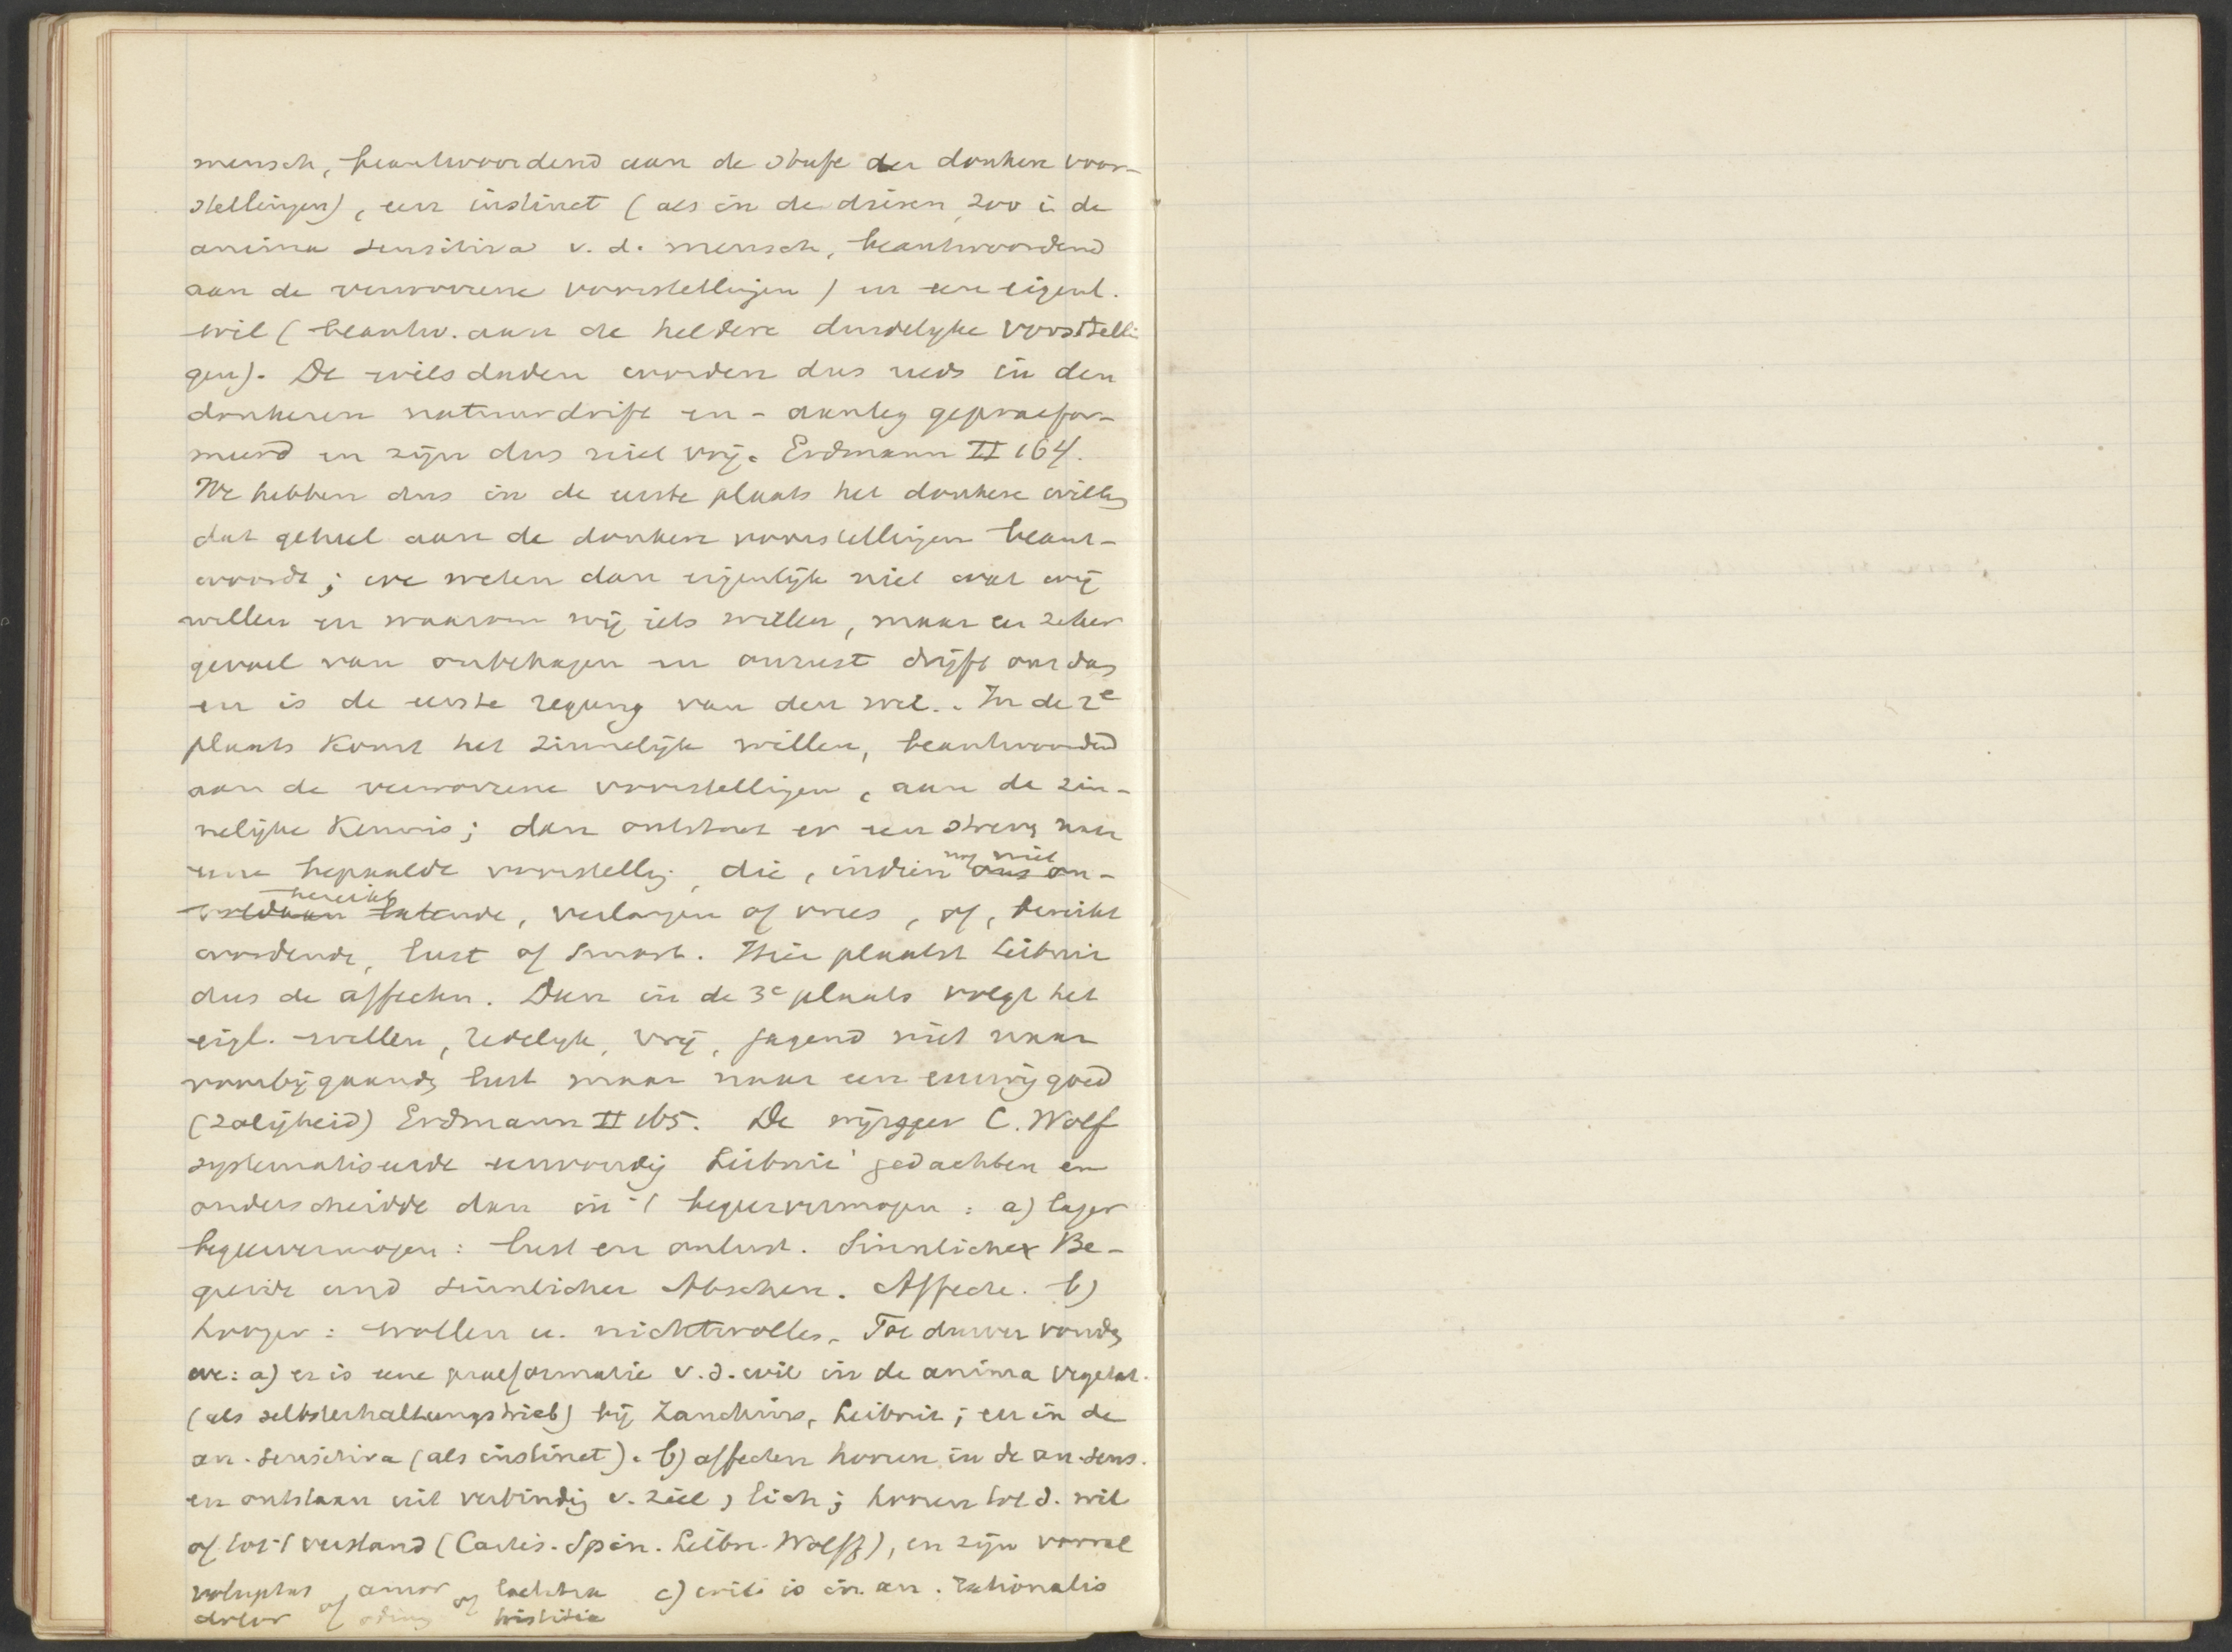 mensch, beantwoordend aan de stufe der donkere voor-
stellingen), een instinct (als in de dieren, zoo i. de
anima sensitiva v. d. mensch, beantwoordend
aan de verworrene voorstellingen) en een eigenl.
wil (beantw. aan de heldere duidelyke voorstelli
gen). De wilsdaden worden dus reeds in den
donkeren natuurdrift en - aanleg gepraefor-
meerd en zijn dus niet vrij. Erdmann II 164.
We hebben dus in de eerste plaats het donkere willen
dat geheel aan de donkere voorstellingen beant-
woordt; we weten dan eigenlijk niet wat wij
willen en waarom wij iets willen, maar een zeker
gevoel van onbehagen en onrust drijft ons dan
en is de eerste regung van den wil. . In de 2e
plaats komt het zinnelijk willen, beantwoordend
aan de verworrene voorstellingen, aan de zin-
nelijke kennis; dan ontstaat er een streven naar
eene bepaalde voorstelling, die, indien nog niet ons on-
voldaan bereikt latende, verlangen of vrees, of, bereikt
wordende, lust of smart. Hier plaatst Leibniz
dus de affecten. Dan in de 3e plaats volgt het
eigl. willen, redelyk, vrij, jagend niet naar
voorbijgaande lust maar naar een eeuwig goed
(zaligheid) Erdmann II 165. De wijsgeer C. Wolf
systematiseerde eenvoudig Leibniz' gedachten en
onderscheidde dan in 't begeervermogen: a) lager
begeervermogen: lust en onlust. Sinnliche Be-
gierde und sinnlicher Abscheu. Affecte. b)
hooger: wollen u. nichtwollen. Toe dusver vonden
we: a) er is eene praeformatie v. d. wil in de anima vegetat.
(als selbsterhaltungstrieb) bij Zanchius, Leibniz; en in de
an. sensitiva (als instinct). b) affecten hooren in de an. sens.
en ontstaan uit verbindig v. ziel, lich; hooren tot d. wil
of tot 't verstand (Cartes. Spin. Leibn. Wolff), en zijn vooral
voluptas of amor of laetitia c) wil is in an. rationalis
dolor of odium tristitia